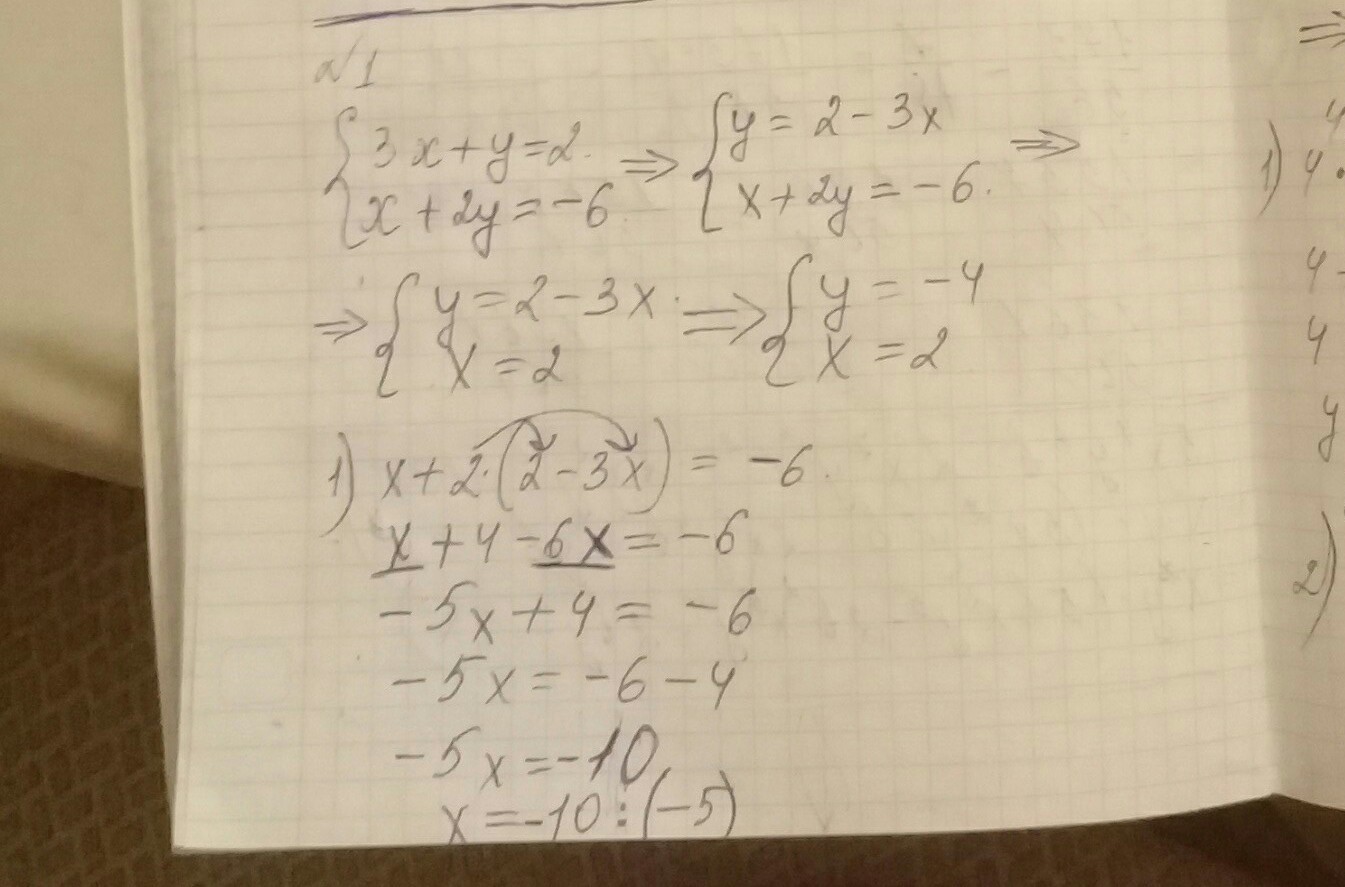 №1
{3x+y=2. ⇒ {y=2-3x ⇒
{x+2y=-6 {x+2y=-6.
⇒ {y=2-3x. ⇒ {y=-4
{x=2 {x=2
1) x+2·(2-3x)=-6.
x+4-6x=-6
-5x+4=-6
-5x=-6-4
-5x=-10
x=-10:(-5)
⇒
1) 4·
4-
4
y
2)